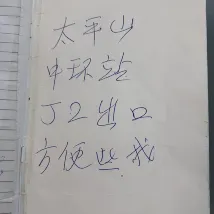 太平山
中环站
J2出口
方便些